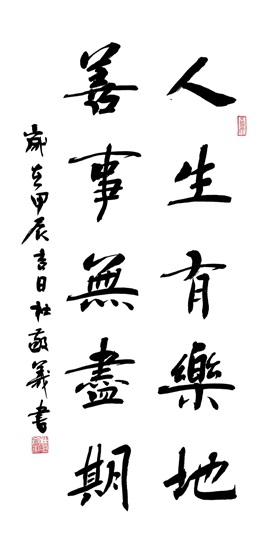 人生有樂地
善事無盡期
歲在甲辰吉日杜敬義書